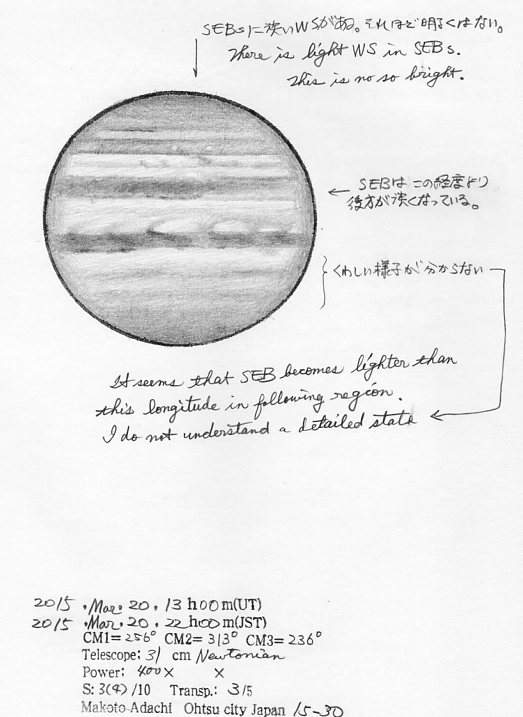 SEBsに淡いWSがある。それほど明るくはない。
There is light WS in SEBs.
This is no so bright.
SEBはこの経度より
後方が淡くなっている。
くわしい様子が分からない
It seems that SEB becomes lighter than
this longitude in following region.
I do not understand a detailed state
2015 .Mar. 20 . 13 h00m(UT)
2015 .Mar. 20 . 22 h00m(JST)
CM1=256° CM2=313° CM3=236°
Telescope: 31 cm Newtonian
Power: 400× ×
S: 3(4) /10 Transp.: 3/5
Makoto Adachi Ohtsu city Japan 15-30